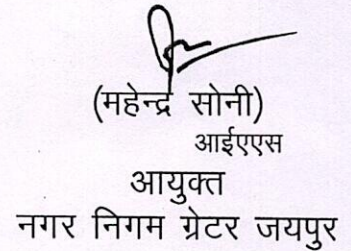 (महेन्द्र सोनी)
आईएएस
आयुक्त
नगर निगम ग्रेटर जयपुर